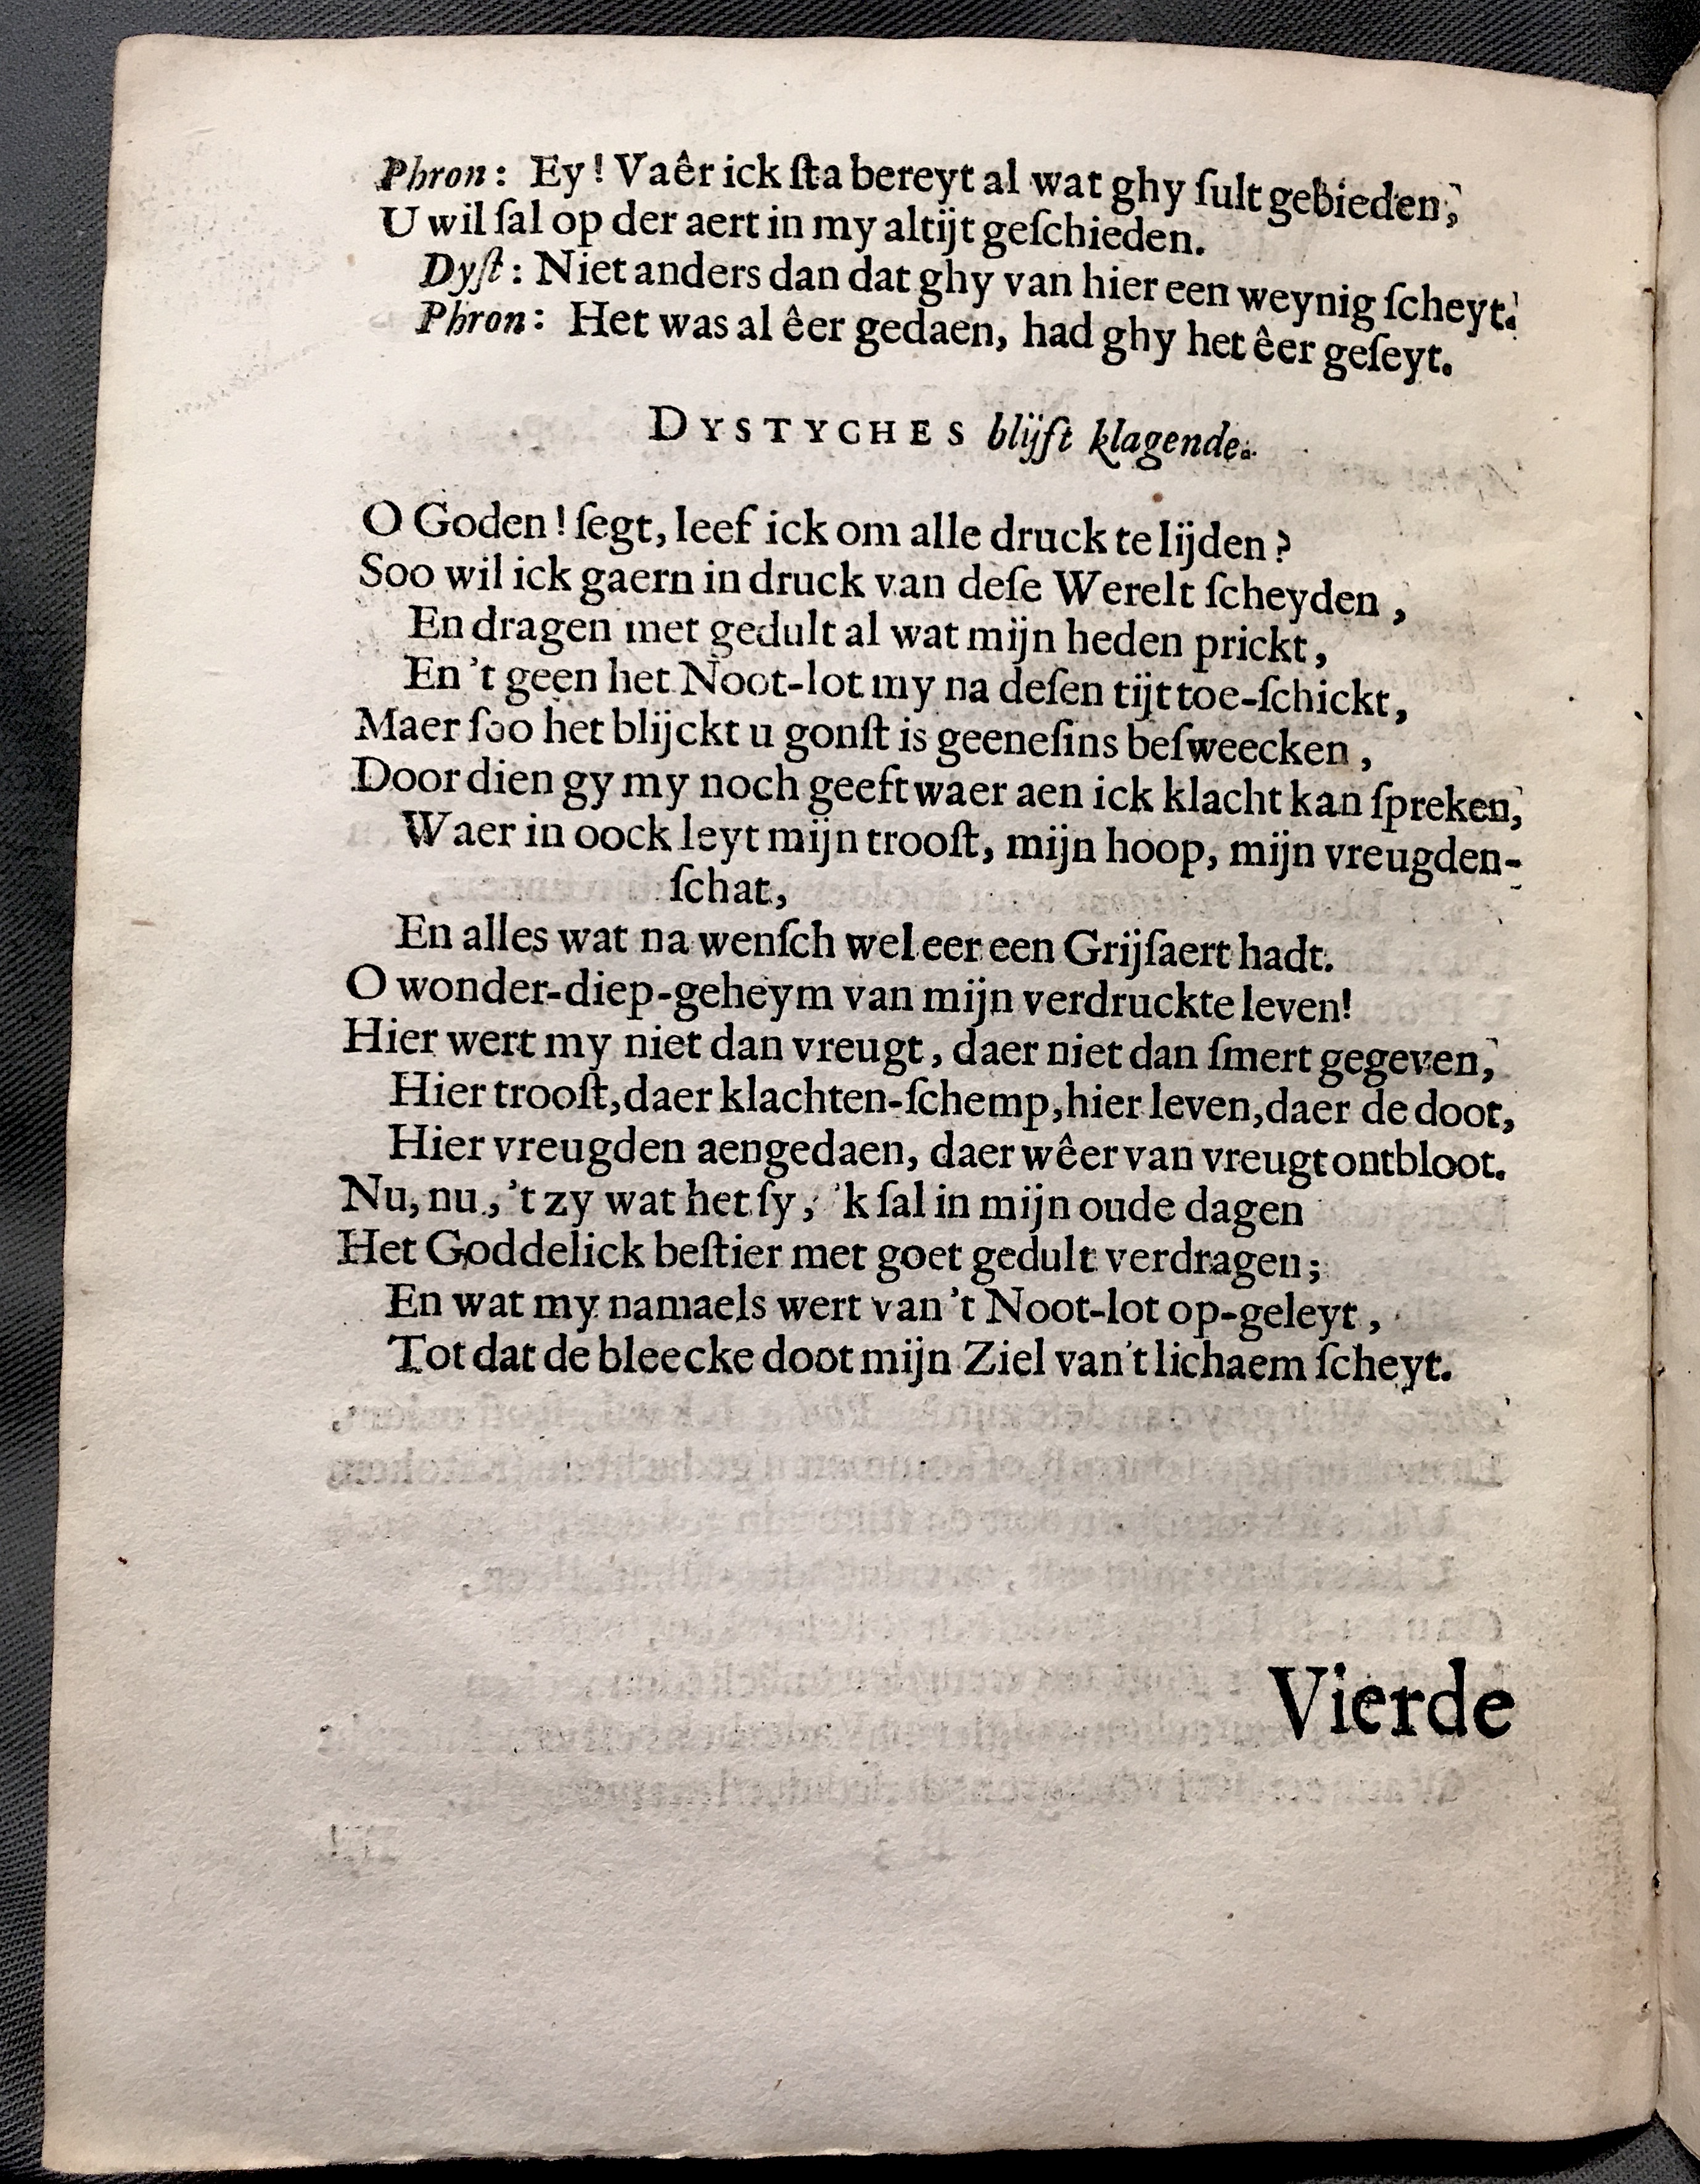 Phron: Ey! Vaêr ick ſta bereyt al wat ghy ſult gebieden,
U wil ſal op der aert in my altijt geſchieden.
Dyſt: Niet anders dan dat ghy van hier een weynig ſcheyt.
Phron: Het was al êer gedaen, had ghy het êer geſeyt.
DYSTYCHES blijft klagende.
O Goden! ſegt, leef ick om alle druck te lijden?
Soo wil ick gaern in druck van deſe Werelt ſcheyden,
En dragen met gedult al wat mijn heden prickt,
En 't geen het Noot-lot my na deſen tijt toe-ſchickt,
Maer ſoo het blijckt u gonſt is geeneſins beſweecken,
Door dien gy my noch geeft waer aen ick klacht kan ſpreken,
Waer in oock leyt mijn trooſt, mijn hoop, mijn vreugden-
ſchat,
En alles wat na wenſch wel eer een Grijſaert hadt.
O wonder-diep-geheym van mijn verdruckte leven!
Hier wert my niet dan vreugt, daer niet dan ſmert gegeven,
Hier trooſt, daer klachten-ſchemp, hier leven, daer de doot,
Hier vreugden aengedaen, daer wêer van vreugt ontbloot.
Nu, nu, 't zy wat het ſy, 'k ſal in mijn oude dagen
Het Goddelick beſtier met goet gedult verdragen;
En wat my namaels wert van 't Noot-lot op-geleyt,
Tot dat de bleecke doot mijn Ziel van't lichaem ſcheyt.
Vierde